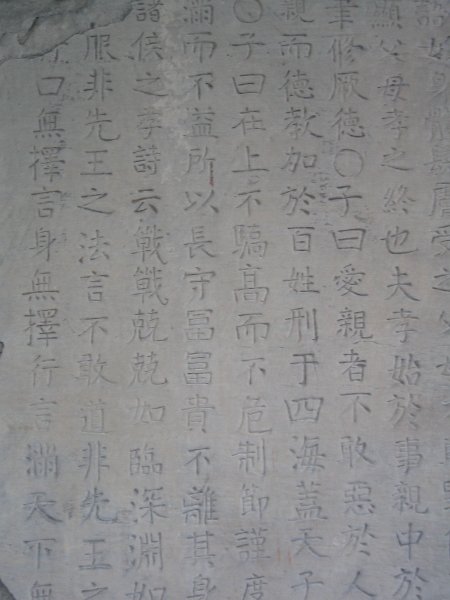 身體髮膚受之父母
顯父母孝之終也夫孝始於事親中於
聿修厥德〇子曰愛親者不敢惡於人
親而德教加於百姓刑于四海蓋天子
〇子曰在上不驕高而不危制節謹度
滿而不益所以長守冨冨貴不離其身
諸侯之孝詩云戰戰兢兢如臨深淵如
服非先王之法言不敢道非先王之
行口無擇言身無擇行言滿天下無